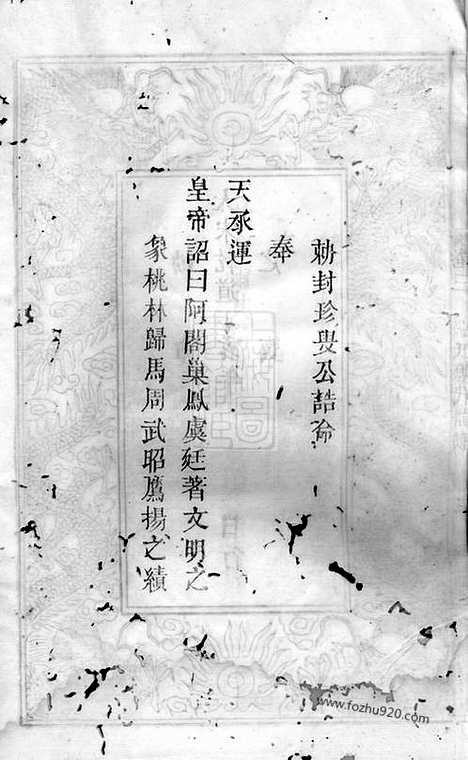 勅封珍㕙公誥命
奉
天承運
皇帝詔曰阿閣巢鳳虞廷著文明之
象桃林歸馬周武昭鷹揚之績
www.fozhu920.com